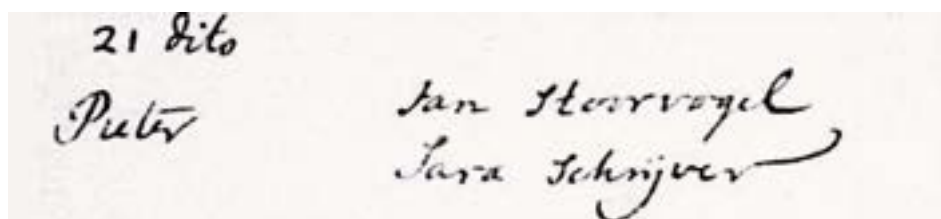 21 dito
Pieter
Jan Stoorvogel
Sara Schrijver